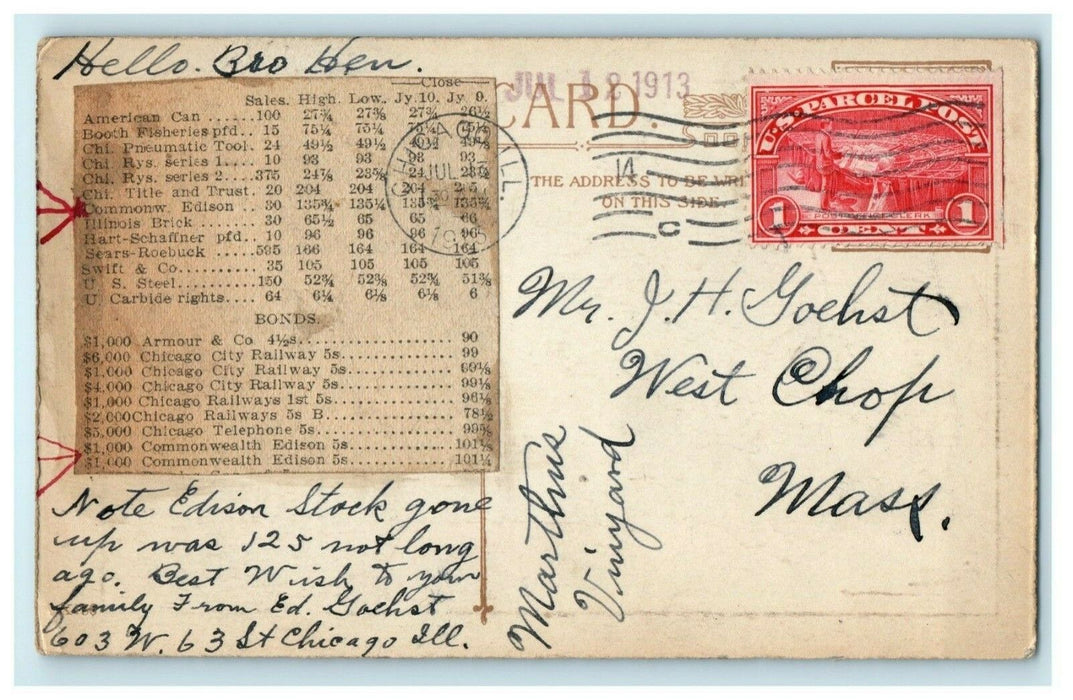 Hello. Bro Hen.
Close
Sales. High. Low. Jy.10. Jy 9.
American Can ......100 27¾ 27¾ 27¾ 26½
Booth Fisheries pfd.. 15 75¼ 75¼ 75¼
Chi. Pneumatic Tool. 24 49½ 49½ 49½
Chi. Rys. series 1.... 10 93 93 93 93
Chi. Rys. series 2....375 24⅛ 23⅝ 24 23½
Chi. Title and Trust. 20 204 204 204
Commonw. Edison .. 30 135¾ 135¼ 135¾ 135½
Illinois Brick ....... 30 65½ 65 65 66
Hart-Schaffner pfd.. 10 96 96 96 96
Sears-Roebuck .....595 166 164 164 164
Swift & Co......... 35 105 105 105 105
U. S. Steel.........150 52¾ 52⅜ 52¾ 51⅜
U. Carbide rights.... 64 6¼ 6⅛ 6⅛ 6
BONDS.
$1,000 Armour & Co 4½s.................... 90
$6,000 Chicago City Railway 5s............. 99
$1,000 Chicago City Railway 5s............. 99⅛
$4,000 Chicago City Railway 5s............. 99⅛
$1,000 Chicago Railways 1st 5s............. 96⅛
$2,000 Chicago Railways 5s B............... 78½
$5,000 Chicago Telephone 5s................ 99⅝
$1,000 Commonwealth Edison 5s............ 101⅛
$1,000 Commonwealth Edison 5s............ 101¼
Note Edison Stock gone
up was 125 not long
ago. Best Wish to your
family From Ed. Goehst
603 W. 63 St Chicago Ill.
JUL 12 1913
CARD.
THE ADDRESS TO BE WRI
ON THIS SIDE.
CHICAGO, ILL.
JUL
U.S. PARCEL POST
POST OFFICE CLERK
1 CENT 1
Mr. J. H. Goehst
West Chop
Mass.
Marthus
Vinyard